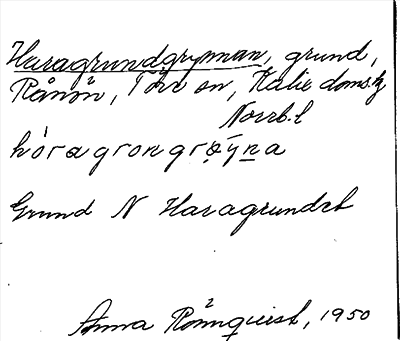 Haragrundgrynnan, grund,
Rånön, Töre sn, Kalix doms.
Norrb. l
hóragrongrøýna
Grund N Haragrundet
Anna Rönnqvist, 1950